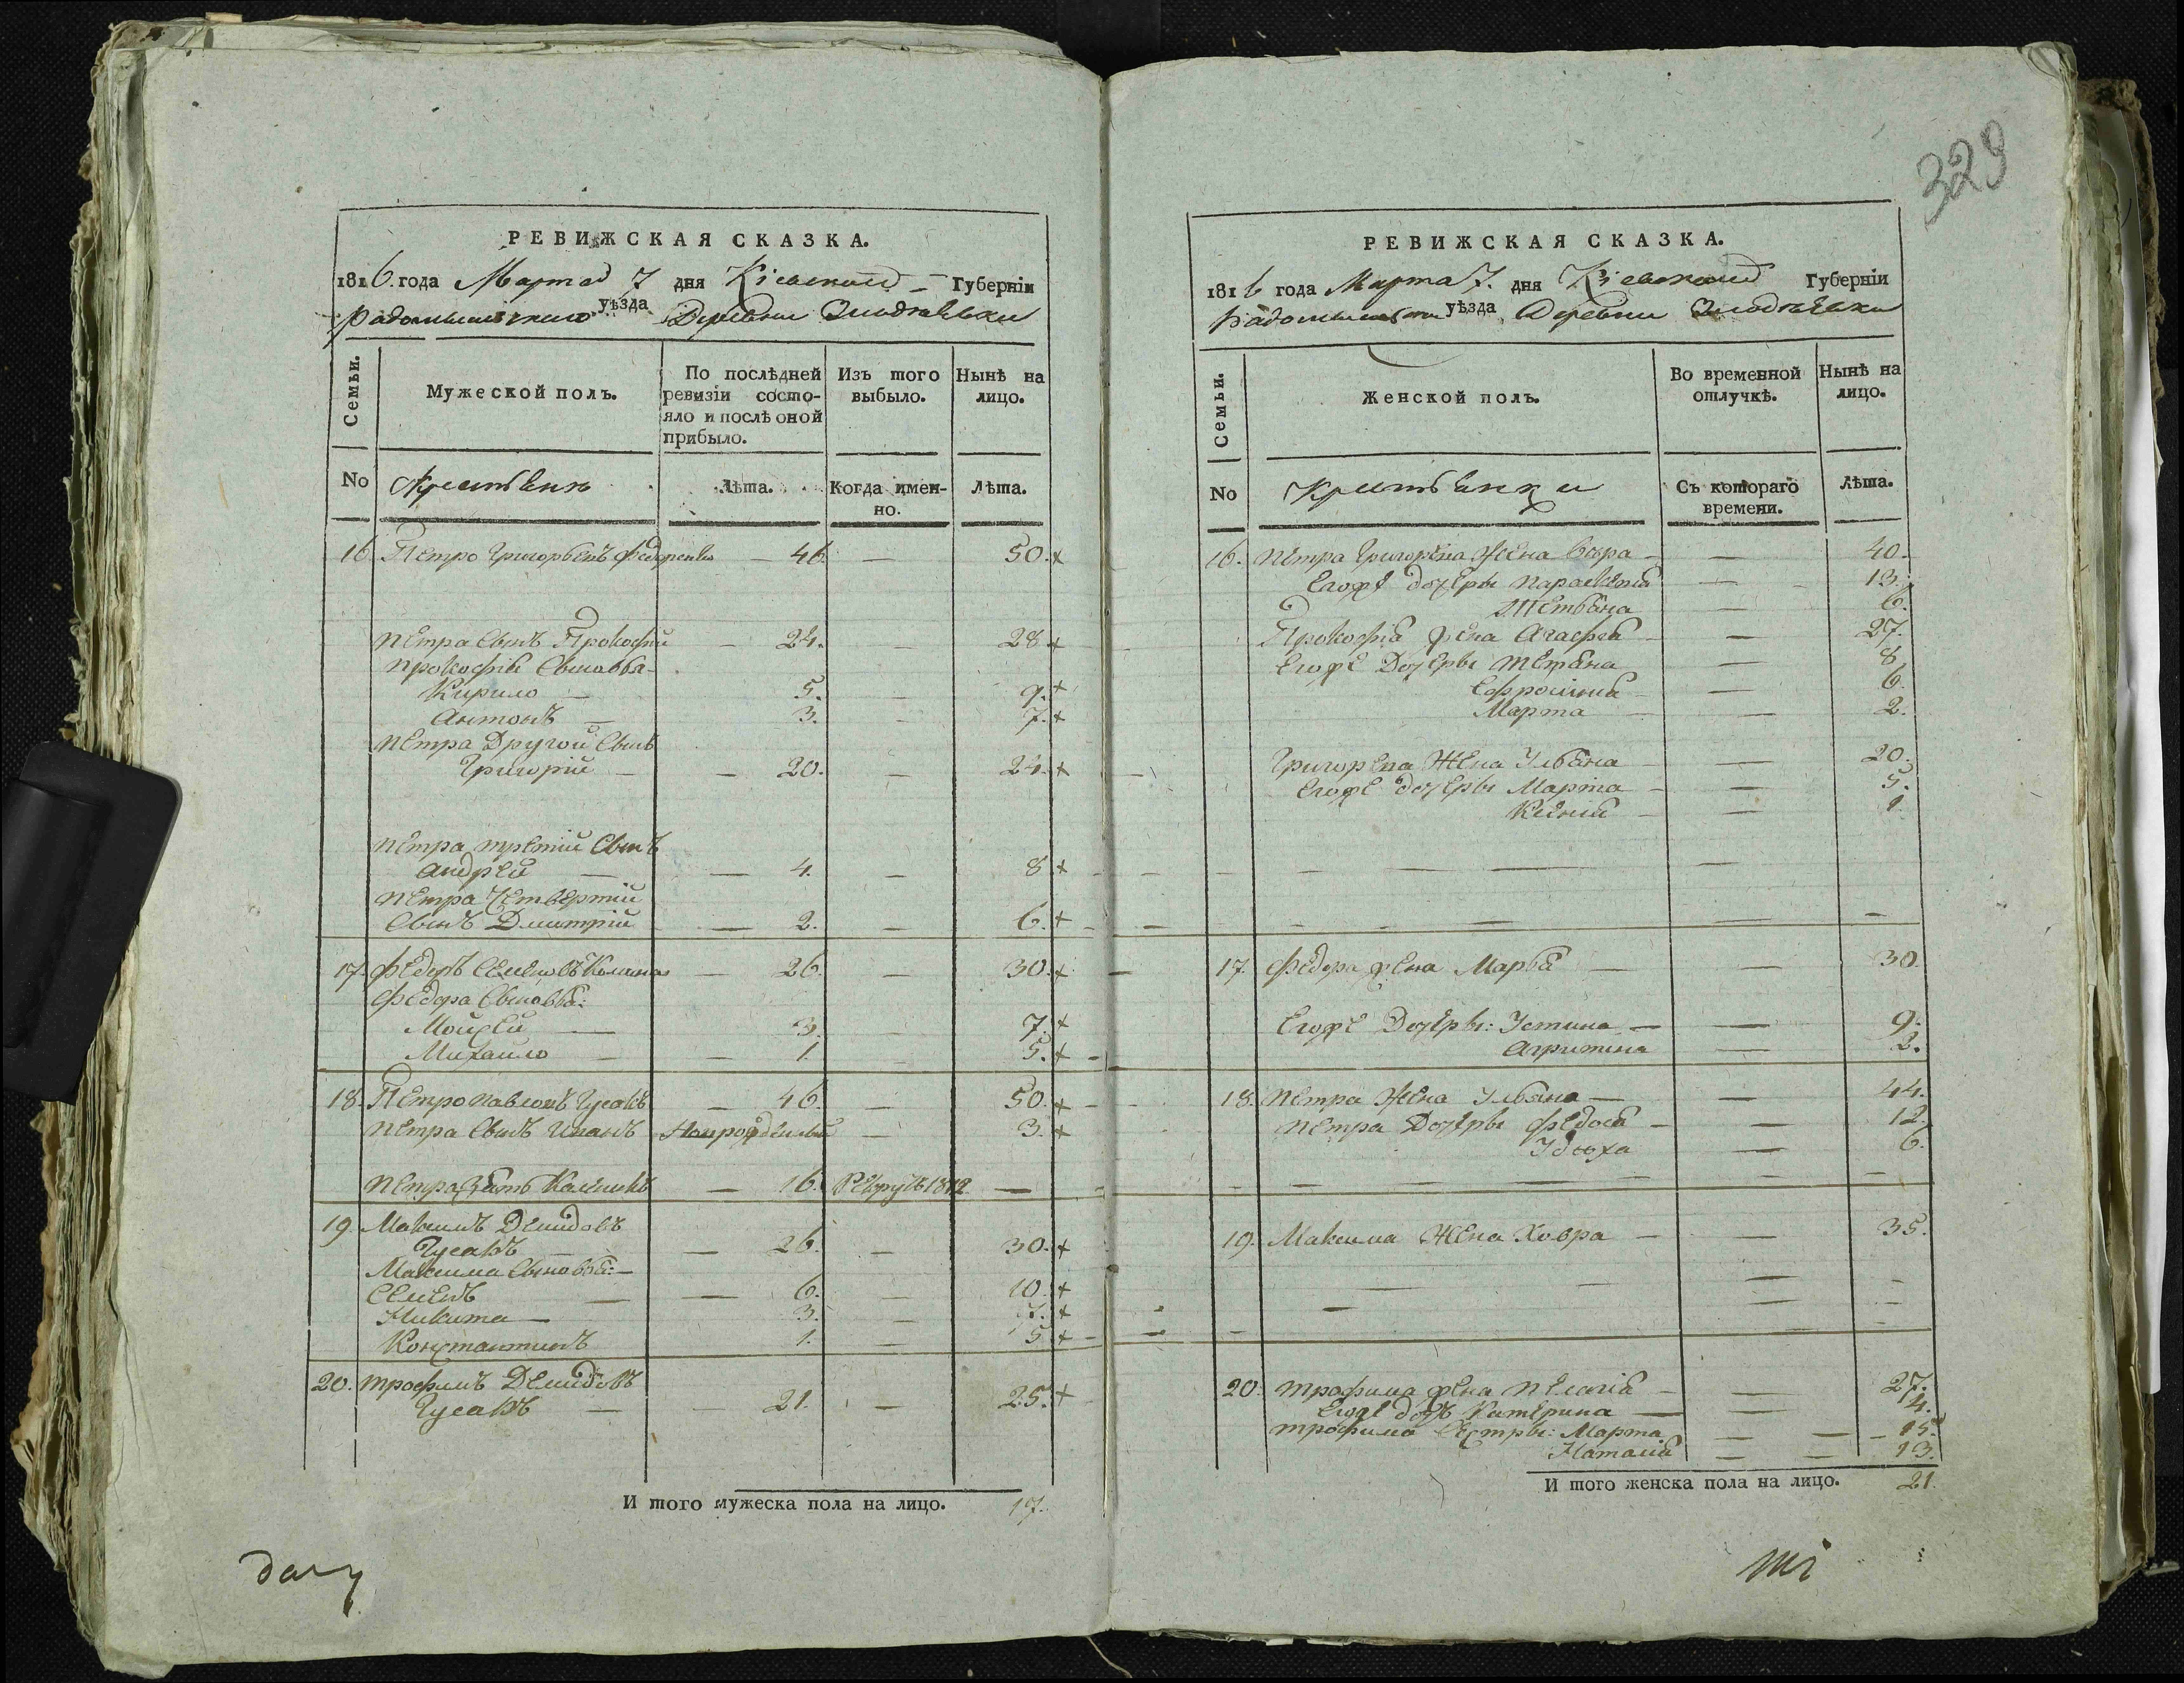 РЕВИЖСКАЯ СКАЗКА.
1816 года Марта 7 дня Кіевской Губерніи
Радомысльского уѣзда Деревни
Семьи.
Мужеской полъ.
По послѣдней ревизіи состояло и послѣ оной прибыло.
Изъ того выбыло.
Нынѣ на лицо.
No
Крестьянъ
Лѣта.
Когда именно.
Лѣта.
16. Петро Григорьевъ Федоренко — 46. — 50. +
Петра Сынъ Прокофій — 24. — 28 +
Прокофія Сыновья
Кирило — 5. — 9. +
Антонъ — 3. — 7. +
Петра Другой Сынъ
Григорій — 20. — 24. +
Петра третій Сынъ
Андрей — 4. — 8 +
Петра Четвертій
Сынъ Дмитрій — 2. — 6. +
17. Федоръ Семеновъ — 26. — 30. +
Федора Сыновья:
Мойсей — 3. — 7. +
Михайло — 1. — 5. +
18. Петро Павловъ Гусакъ — 46. — 50. +
Петра Сынъ Иванъ Новорожденный — 3. +
Петра Зять — 16. Рекрутъ 1812 —
19. Максимъ Демидовъ
Гусакъ — 26. — 30. +
Максима Сыновья: —
Семенъ — 6. — 10. +
Никита — 3. — 7. +
Константинъ 1. — 5. +
20. Трофимъ Демидовъ
Гусакъ — 21. — 25. +
И того мужеска пола на лицо. 17.
329
РЕВИЖСКАЯ СКАЗКА.
1816 года Марта 7. дня Кіевской Губерніи
Радомысльского уѣзда Деревни
Семьи.
Женской полъ.
Во временной отлучкѣ.
Нынѣ на лицо.
No
Крестьянки
Съ котораго времени.
Лѣта.
16. Петра Григорьева Жена — 40.
Егожъ дочеры Параскевія — 13.
6.
Прокофія жена Агафія — 27.
Егожъ Дочеры Тетяна — 8.
Ефросинія — 6.
Марта — 2.
Григорія Жена Ульяна — 20.
Егожъ дочеры Марта — 5.
Ксенія — 1.
17. Федора жена Марья — 30.
Егожъ Дочеры: Устина — 9.
Агрипина — 2.
18. Петра Жена Ульяна — 44.
Петра Дочеры Федося — 12.
Удоха — 6.
19. Максима Жена Ховра — 35.
20. Трофима жена Пелагія — 27.
Егожъ дочь Катерина — 4.
Трофима Сестры: Марта — 15.
Наталія — 13.
И того женска пола на лицо. 21.